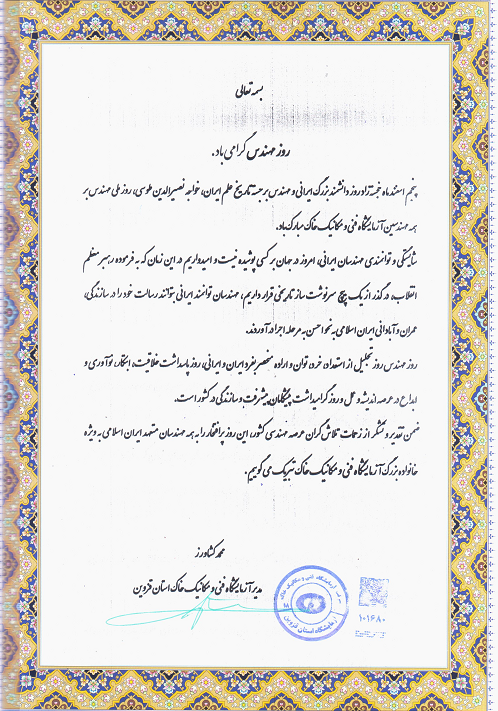 بسمه تعالی
روز مهندس گرامی باد.
پنجم اسفندماه خجسته زادروز دانشمند بزرگ ایرانی و مهندس برجسته تاریخ علم ایران، خواجه نصیرالدین طوسی، روز ملی مهندس بر
همه مهندسین آزمایشگاه فنی و مکانیک خاک مبارک باد.
شایستگی و توانمندی مهندسان ایرانی، امروز در جهان بر کسی پوشیده نیست و امیدواریم در این زمان که به فرموده رهبر معظم
انقلاب، در گذر از یک پیچ سرنوشت ساز تاریخی قرار داریم، مهندسان توانمند ایرانی بتوانند رسالت خود را در سازندگی،
عمران و آبادانی ایران اسلامی به نحو احسن به مرحله اجرا درآورند.
روز مهندس روز تجلیل از استعداد، خرد، توان و اراده منحصر بفرد ایران و ایرانی، روز پاسداشت خلاقیت، ابتکار، نوآوری و
ابداع در عرصه اندیشه و عمل و روز گرامیداشت پیشگامان پیشرفت و سازندگی در کشور است.
ضمن تقدیر و تشکر از زحمات تلاش گران عرصه مهندسی کشور، این روز پرافتخار را به همه مهندسان متعهد ایران اسلامی به ویژه
خانواده بزرگ آزمایشگاه فنی و مکانیک خاک تبریک می گوییم.
محمد کشاورز
مدیر آزمایشگاه فنی و مکانیک خاک استان قزوین
آزمایشگاه فنی و مکانیک خاک
آزمایشگاه استان قزوین
۱۰۱۶۸۰